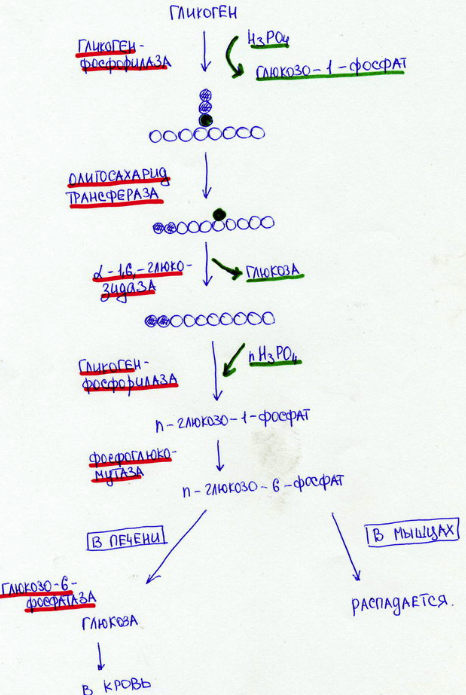 ГЛИКОГЕН
ГЛИКОГЕН-
ФОСФОРИЛАЗА
H3PO4
ГЛЮКОЗО-1-ФОСФАТ
ОЛИГОСАХАРИД
ТРАНСФЕРАЗА
α-1,6,-ГЛЮКО-
ЗИДАЗА
ГЛЮКОЗА
ГЛИКОГЕН-
ФОСФОРИЛАЗА
nH3PO4
n-ГЛЮКОЗО-1-ФОСФАТ
ФОСФОГЛЮКО-
МУТАЗА
n-ГЛЮКОЗО-6-ФОСФАТ
В ПЕЧЕНИ
В МЫШЦАХ
ГЛЮКОЗО-6-
ФОСФАТАЗА
ГЛЮКОЗА
РАСПАДАЕТСЯ.
В КРОВЬ